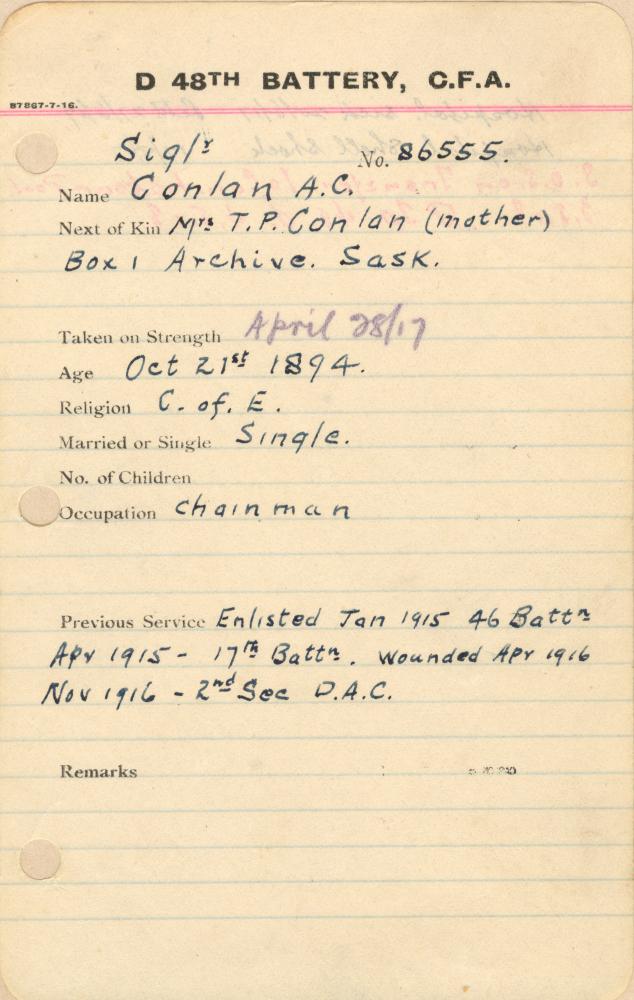 D 48TH BATTERY, C.F.A.
B7867-7-16.
Siglr No. 86555.
Name Conlan A.C.
Next of Kin Mrs T.P. Conlan (mother)
Box 1 Archive. Sask.
Taken on Strength April 28/17
Age Oct 21st 1894.
Religion C. of. E.
Married or Single Single.
No. of Children
Occupation Chainman
Previous Service Enlisted Jan 1915 46 Battn
Apr 1915 - 17th Battn. Wounded Apr 1916
Nov 1916 - 2nd Sec D.A.C.
Remarks